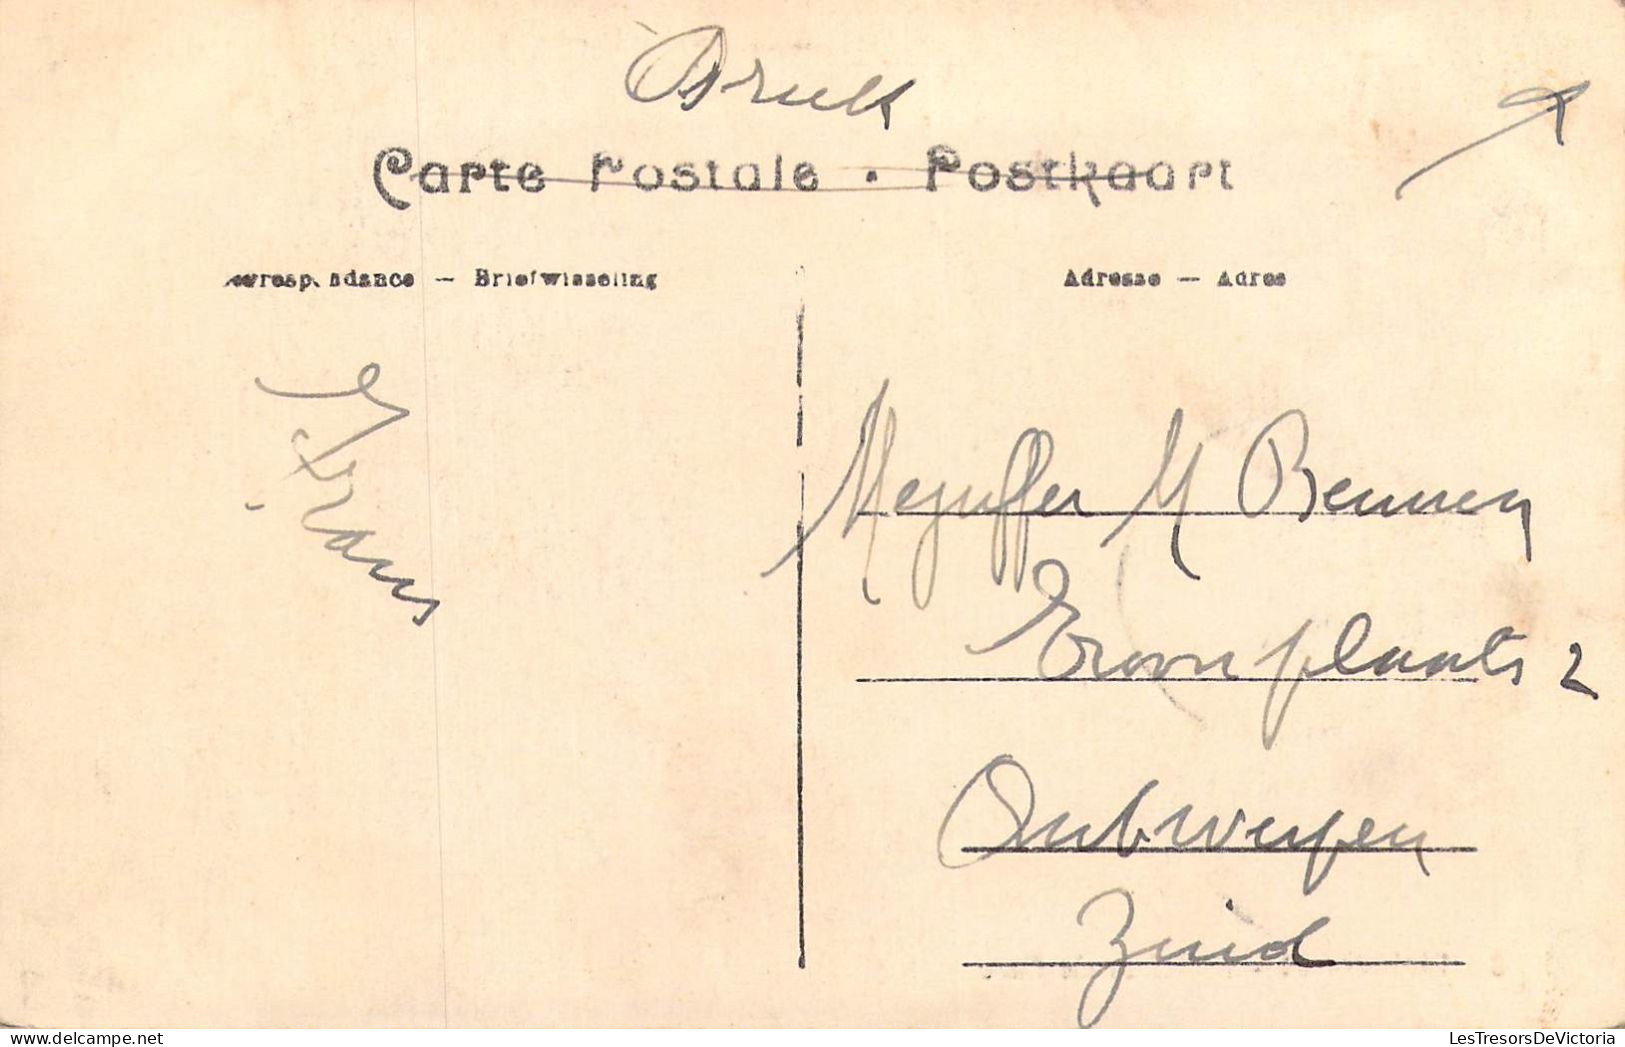 Druk
Carte Postale • Postkaart
Correspondance — Briefwisseling
Adresse — Adres
Frans
Mejuffer M Bennen
Troonplaats 2
Antwerpen
Zuid
LesTresorsDeVictoria